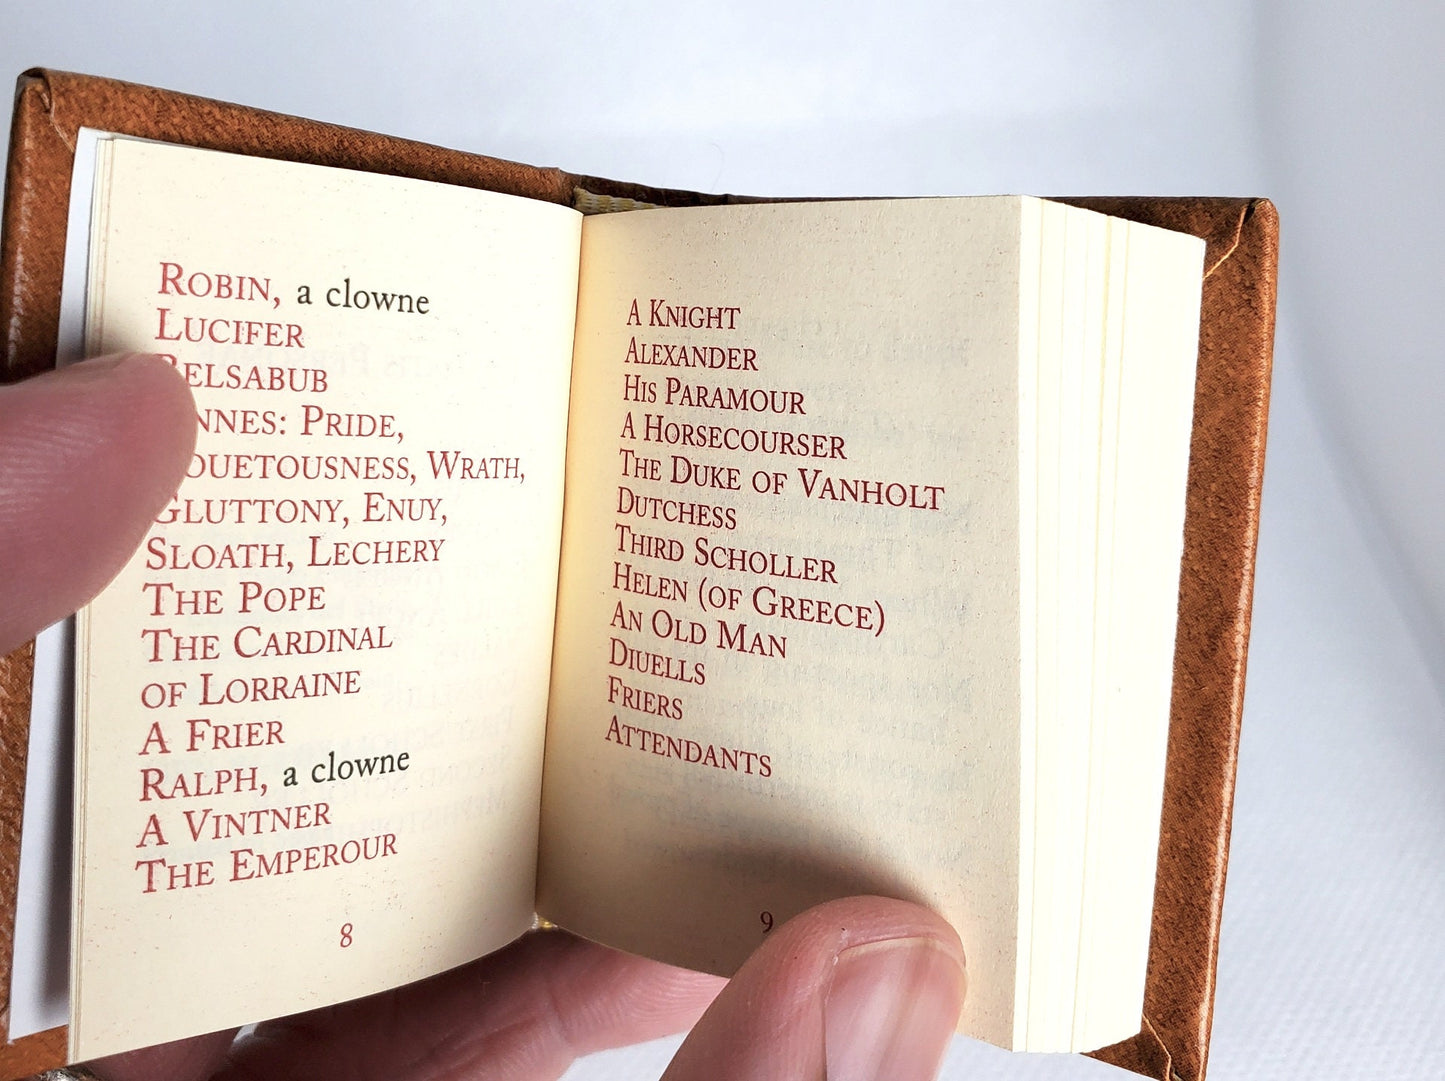 ROBIN, a clowne
LUCIFER
BELSABUB
NNES: PRIDE,
OUETOUSNESS, WRATH,
GLUTTONY, ENUY,
SLOATH, LECHERY
THE POPE
THE CARDINAL
OF LORRAINE
A FRIER
RALPH, a clowne
A VINTNER
THE EMPEROUR
8
A KNIGHT
ALEXANDER
HIS PARAMOUR
A HORSECOURSER
THE DUKE OF VANHOLT
DUTCHESS
THIRD SCHOLLER
HELEN (OF GREECE)
AN OLD MAN
DIUELLS
FRIERS
ATTENDANTS
9